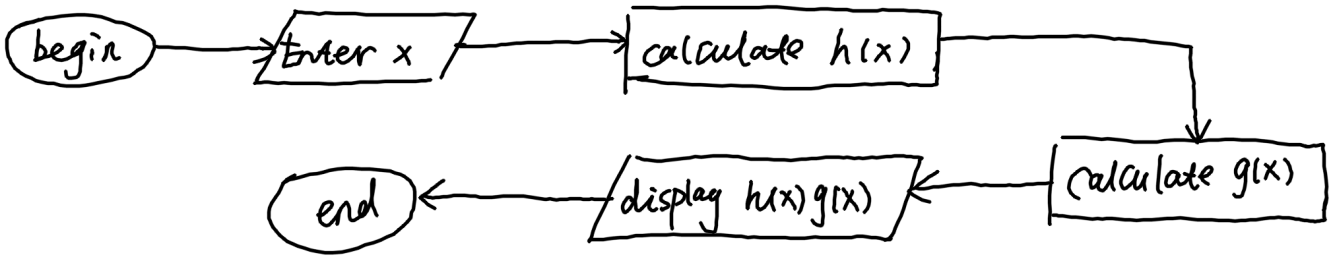 begin
Enter x
calculate h(x)
calculate g(x)
display h(x)g(x)
end